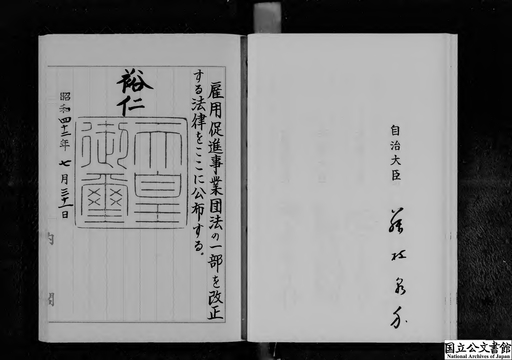 自治大臣
藤枝泉介
雇用促進事業団法の一部を改正
する法律をここに公布する。
裕仁
天皇
御璽
昭和四十二年七月三十一日
内閣
国立公文書館
National Archives of Japan